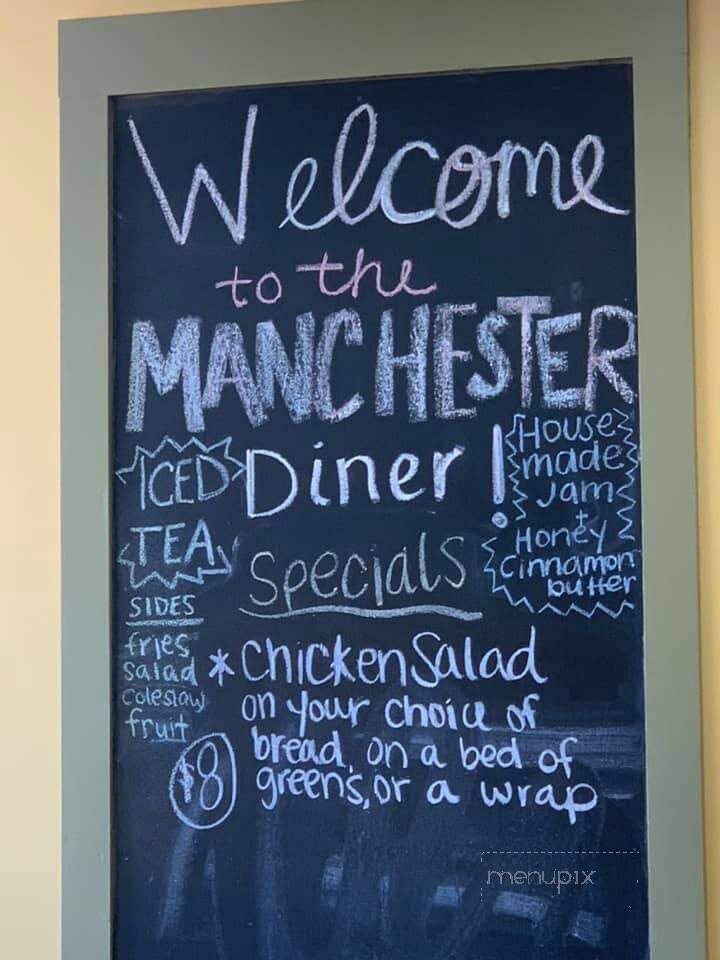 Welcome
to the
MANCHESTER
Diner!
ICED
TEA
House
made
Jam
+
Honey
Cinnamon
butter
Specials
SIDES
fries
salad
Coleslaw
fruit
* Chicken Salad
on your choice of
bread, on a bed of
greens, or a wrap
$8
menupix